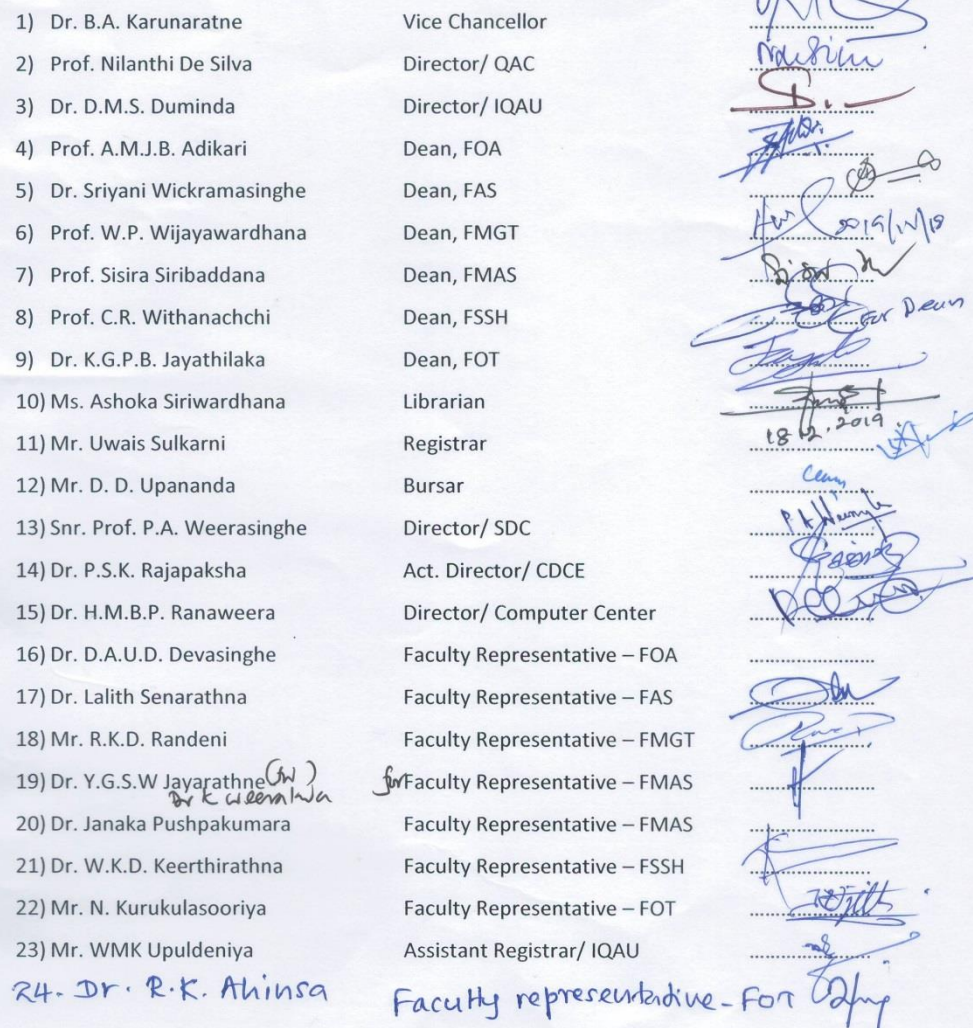 1) Dr. B.A. Karunaratne Vice Chancellor
2) Prof. Nilanthi De Silva Director/ QAC
3) Dr. D.M.S. Duminda Director/ IQAU
4) Prof. A.M.J.B. Adikari Dean, FOA
5) Dr. Sriyani Wickramasinghe Dean, FAS
6) Prof. W.P. Wijayawardhana Dean, FMGT
7) Prof. Sisira Siribaddana Dean, FMAS
8) Prof. C.R. Withanachchi Dean, FSSH For Dean
9) Dr. K.G.P.B. Jayathilaka Dean, FOT
10) Ms. Ashoka Siriwardhana Librarian
18.12.2019
11) Mr. Uwais Sulkarni Registrar
12) Mr. D. D. Upananda Bursar
13) Snr. Prof. P.A. Weerasinghe Director/ SDC
14) Dr. P.S.K. Rajapaksha Act. Director/ CDCE
15) Dr. H.M.B.P. Ranaweera Director/ Computer Center
16) Dr. D.A.U.D. Devasinghe Faculty Representative – FOA
17) Dr. Lalith Senarathna Faculty Representative – FAS
18) Mr. R.K.D. Randeni Faculty Representative – FMGT
19) Dr. Y.G.S.W Jayarathne for Faculty Representative – FMAS
Dr K
20) Dr. Janaka Pushpakumara Faculty Representative – FMAS
21) Dr. W.K.D. Keerthirathna Faculty Representative – FSSH
22) Mr. N. Kurukulasooriya Faculty Representative – FOT
23) Mr. WMK Upuldeniya Assistant Registrar/ IQAU
24. Dr. R.K. Ahinsa Faculty representative - FOT